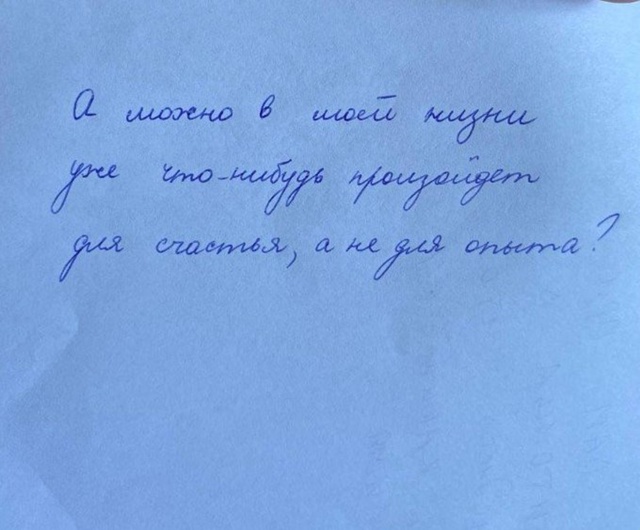 А можно в моей жизни
уже что-нибудь произойдет
для счастья, а не для опыта?